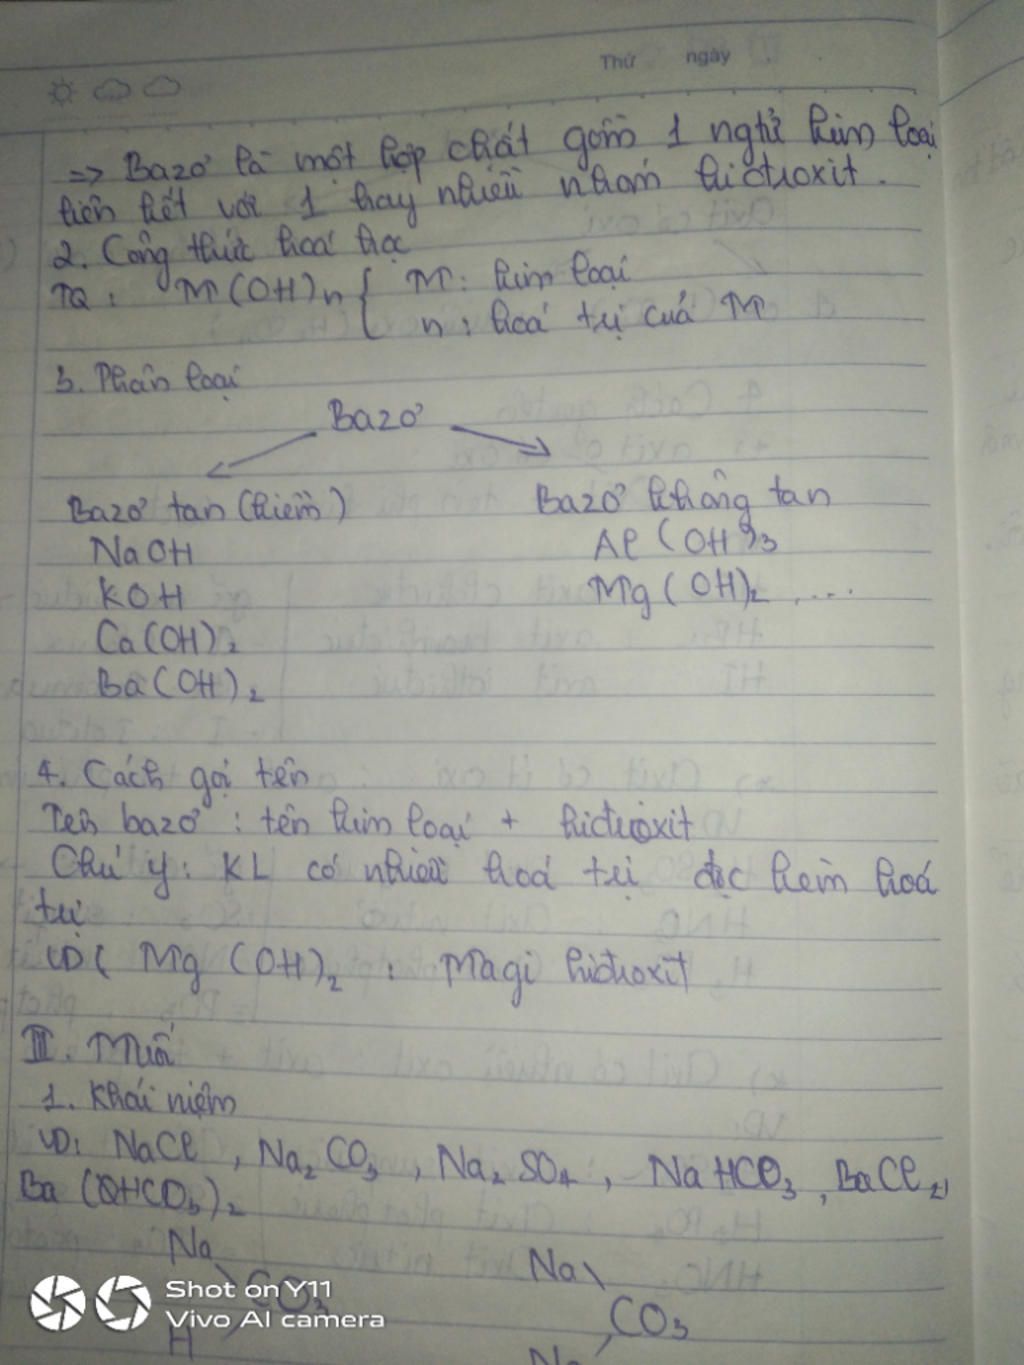 Thứ ngày
=> Bazơ là một hợp chất gồm 1 ngtử kim loại
liên kết với 1 hay nhiều nhóm hiđroxit.
2. Công thức hoá học
TQ: M(OH)n { M: kim loại
n: hoá trị của M
3. Phân loại
Bazơ
Bazơ tan (kiềm) Bazơ không tan
NaOH Al(OH)3
KOH Mg(OH)2, ....
Ca(OH)2
Ba(OH)2
4. Cách gọi tên
Tên bazơ: tên kim loại + hiđroxit
Chú ý: KL có nhiều hoá trị đọc kèm hoá
trị
VD( Mg(OH)2: Magi hiđroxit
III. Muối
1. Khái niệm
VD: NaCl, Na2CO3, Na2SO4, NaHCO3, BaCl2,
Ba(HCO3)2
Na Na
CO3 CO3
H Na
Shot on Y11
Vivo AI camera